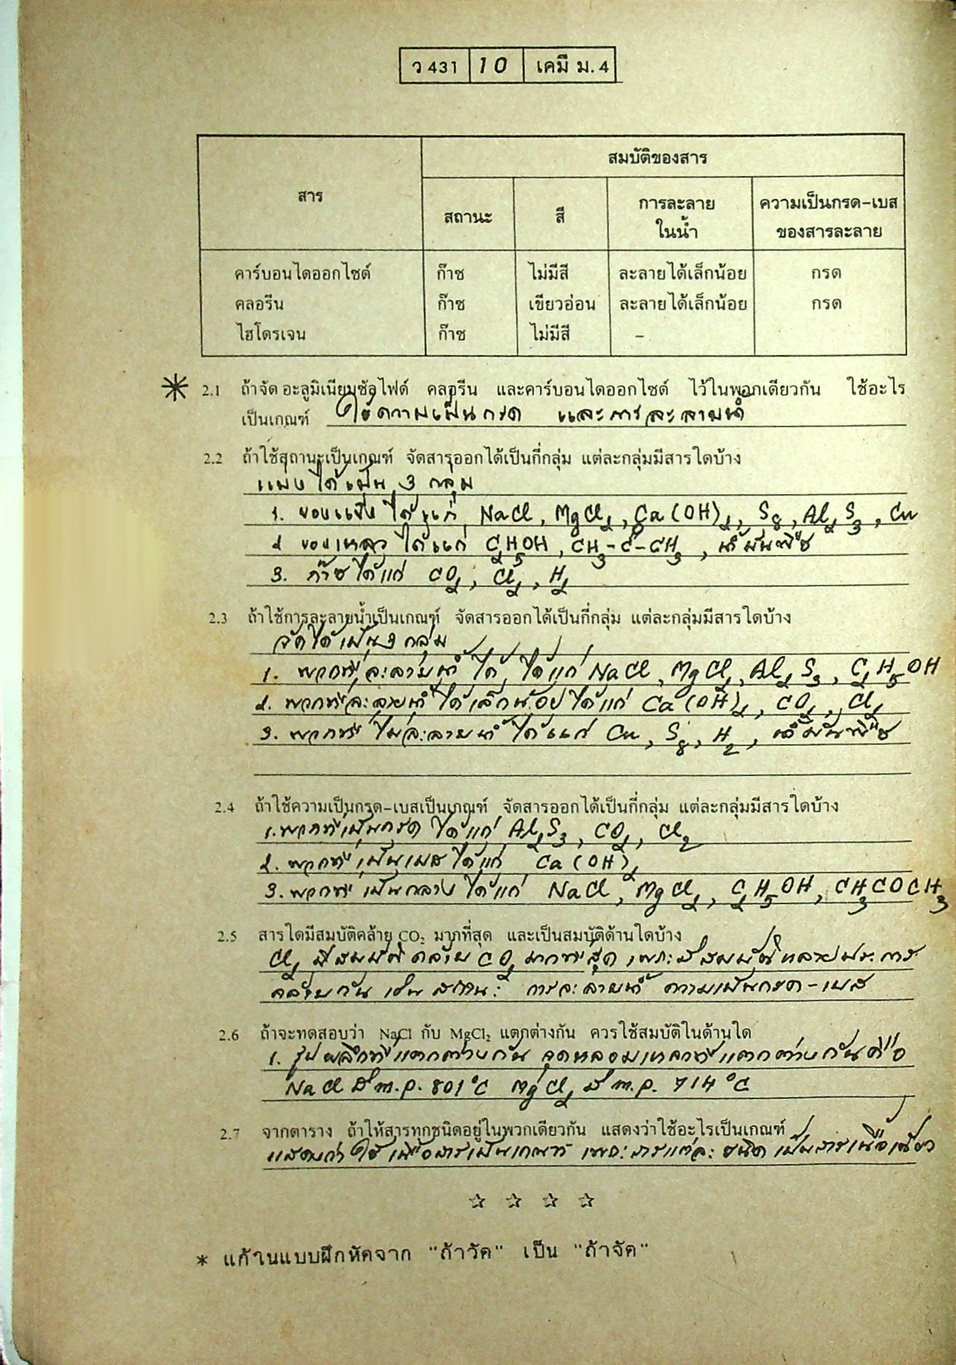 ว 431 10 เคมี ม. 4
สมบัติของสาร
สาร สถานะ สี การละลาย ความเป็นกรด-เบส
ในน้ำ ของสารละลาย
คาร์บอนไดออกไซด์ ก๊าซ ไม่มีสี ละลายได้เล็กน้อย กรด
คลอรีน ก๊าซ เขียวอ่อน ละลายได้เล็กน้อย กรด
ไฮโดรเจน ก๊าซ ไม่มีสี –
* 2.1 ถ้าจัด อะลูมิเนียมซัลไฟด์ คลอรีน และคาร์บอนไดออกไซด์ ไว้ในพวกเดียวกัน ใช้อะไร
เป็นเกณฑ์ ใช้ความเป็นกรด และการละลายน้ำ
2.2 ถ้าใช้สถานะเป็นเกณฑ์ จัดสารออกได้เป็นกี่กลุ่ม แต่ละกลุ่มมีสารใดบ้าง
แบ่งได้เป็น 3 กลุ่ม
1. ของแข็ง ได้แก่ NaCl, MgCl₂, Ca(OH)₂, S₈, Al₂S₃, Cu
2 ของเหลว ได้แก่ C₂H₅OH, CH₃-C-CH₃, น้ำมันพืช
3. ก๊าซ ได้แก่ CO₂, Cl₂, H₂
2.3 ถ้าใช้การละลายน้ำเป็นเกณฑ์ จัดสารออกได้เป็นกี่กลุ่ม แต่ละกลุ่มมีสารใดบ้าง
จัดได้เป็น 3 กลุ่ม
1. พวกที่ละลายน้ำได้ ได้แก่ NaCl, MgCl₂, Al₂S₃, C₂H₅OH
2. พวกที่ละลายน้ำได้เล็กน้อย ได้แก่ Ca(OH)₂, CO₂, Cl₂
3. พวกที่ไม่ละลายน้ำ ได้แก่ Cu, S₈, H₂, น้ำมันพืช
2.4 ถ้าใช้ความเป็นกรด-เบสเป็นเกณฑ์ จัดสารออกได้เป็นกี่กลุ่ม แต่ละกลุ่มมีสารใดบ้าง
1. พวกที่เป็นกรด ได้แก่ Al₂S₃, CO₂, Cl₂
2. พวกที่เป็นเบส ได้แก่ Ca(OH)₂
3. พวกที่เป็นกลาง ได้แก่ NaCl, MgCl₂, C₂H₅OH, CH₃COCH₃
2.5 สารใดมีสมบัติคล้าย CO₂ มากที่สุด และเป็นสมบัติด้านใดบ้าง
Cl₂ มีสมบัติคล้าย CO₂ มากที่สุด เพราะมีสมบัติหลายประการ
คล้ายกัน เช่น สถานะ การละลายน้ำ ความเป็นกรด-เบส
2.6 ถ้าจะทดสอบว่า NaCl กับ MgCl₂ แตกต่างกัน ควรใช้สมบัติในด้านใด
1. รูปผลึกที่แตกต่างกัน จุดหลอมเหลวที่แตกต่างกันคือ
NaCl มี m.p. 801°C MgCl₂ มี m.p. 714°C
2.7 จากตาราง ถ้าให้สารทุกชนิดอยู่ในพวกเดียวกัน แสดงว่าใช้อะไรเป็นเกณฑ์
แสดงว่า ใช้เนื้อสารเป็นเกณฑ์ เพราะสารแต่ละชนิด เป็นสารเนื้อเดียว
☆ ☆ ☆ ☆
* แก้ในแบบฝึกหัดจาก "ถ้าวัด" เป็น "ถ้าจัด"